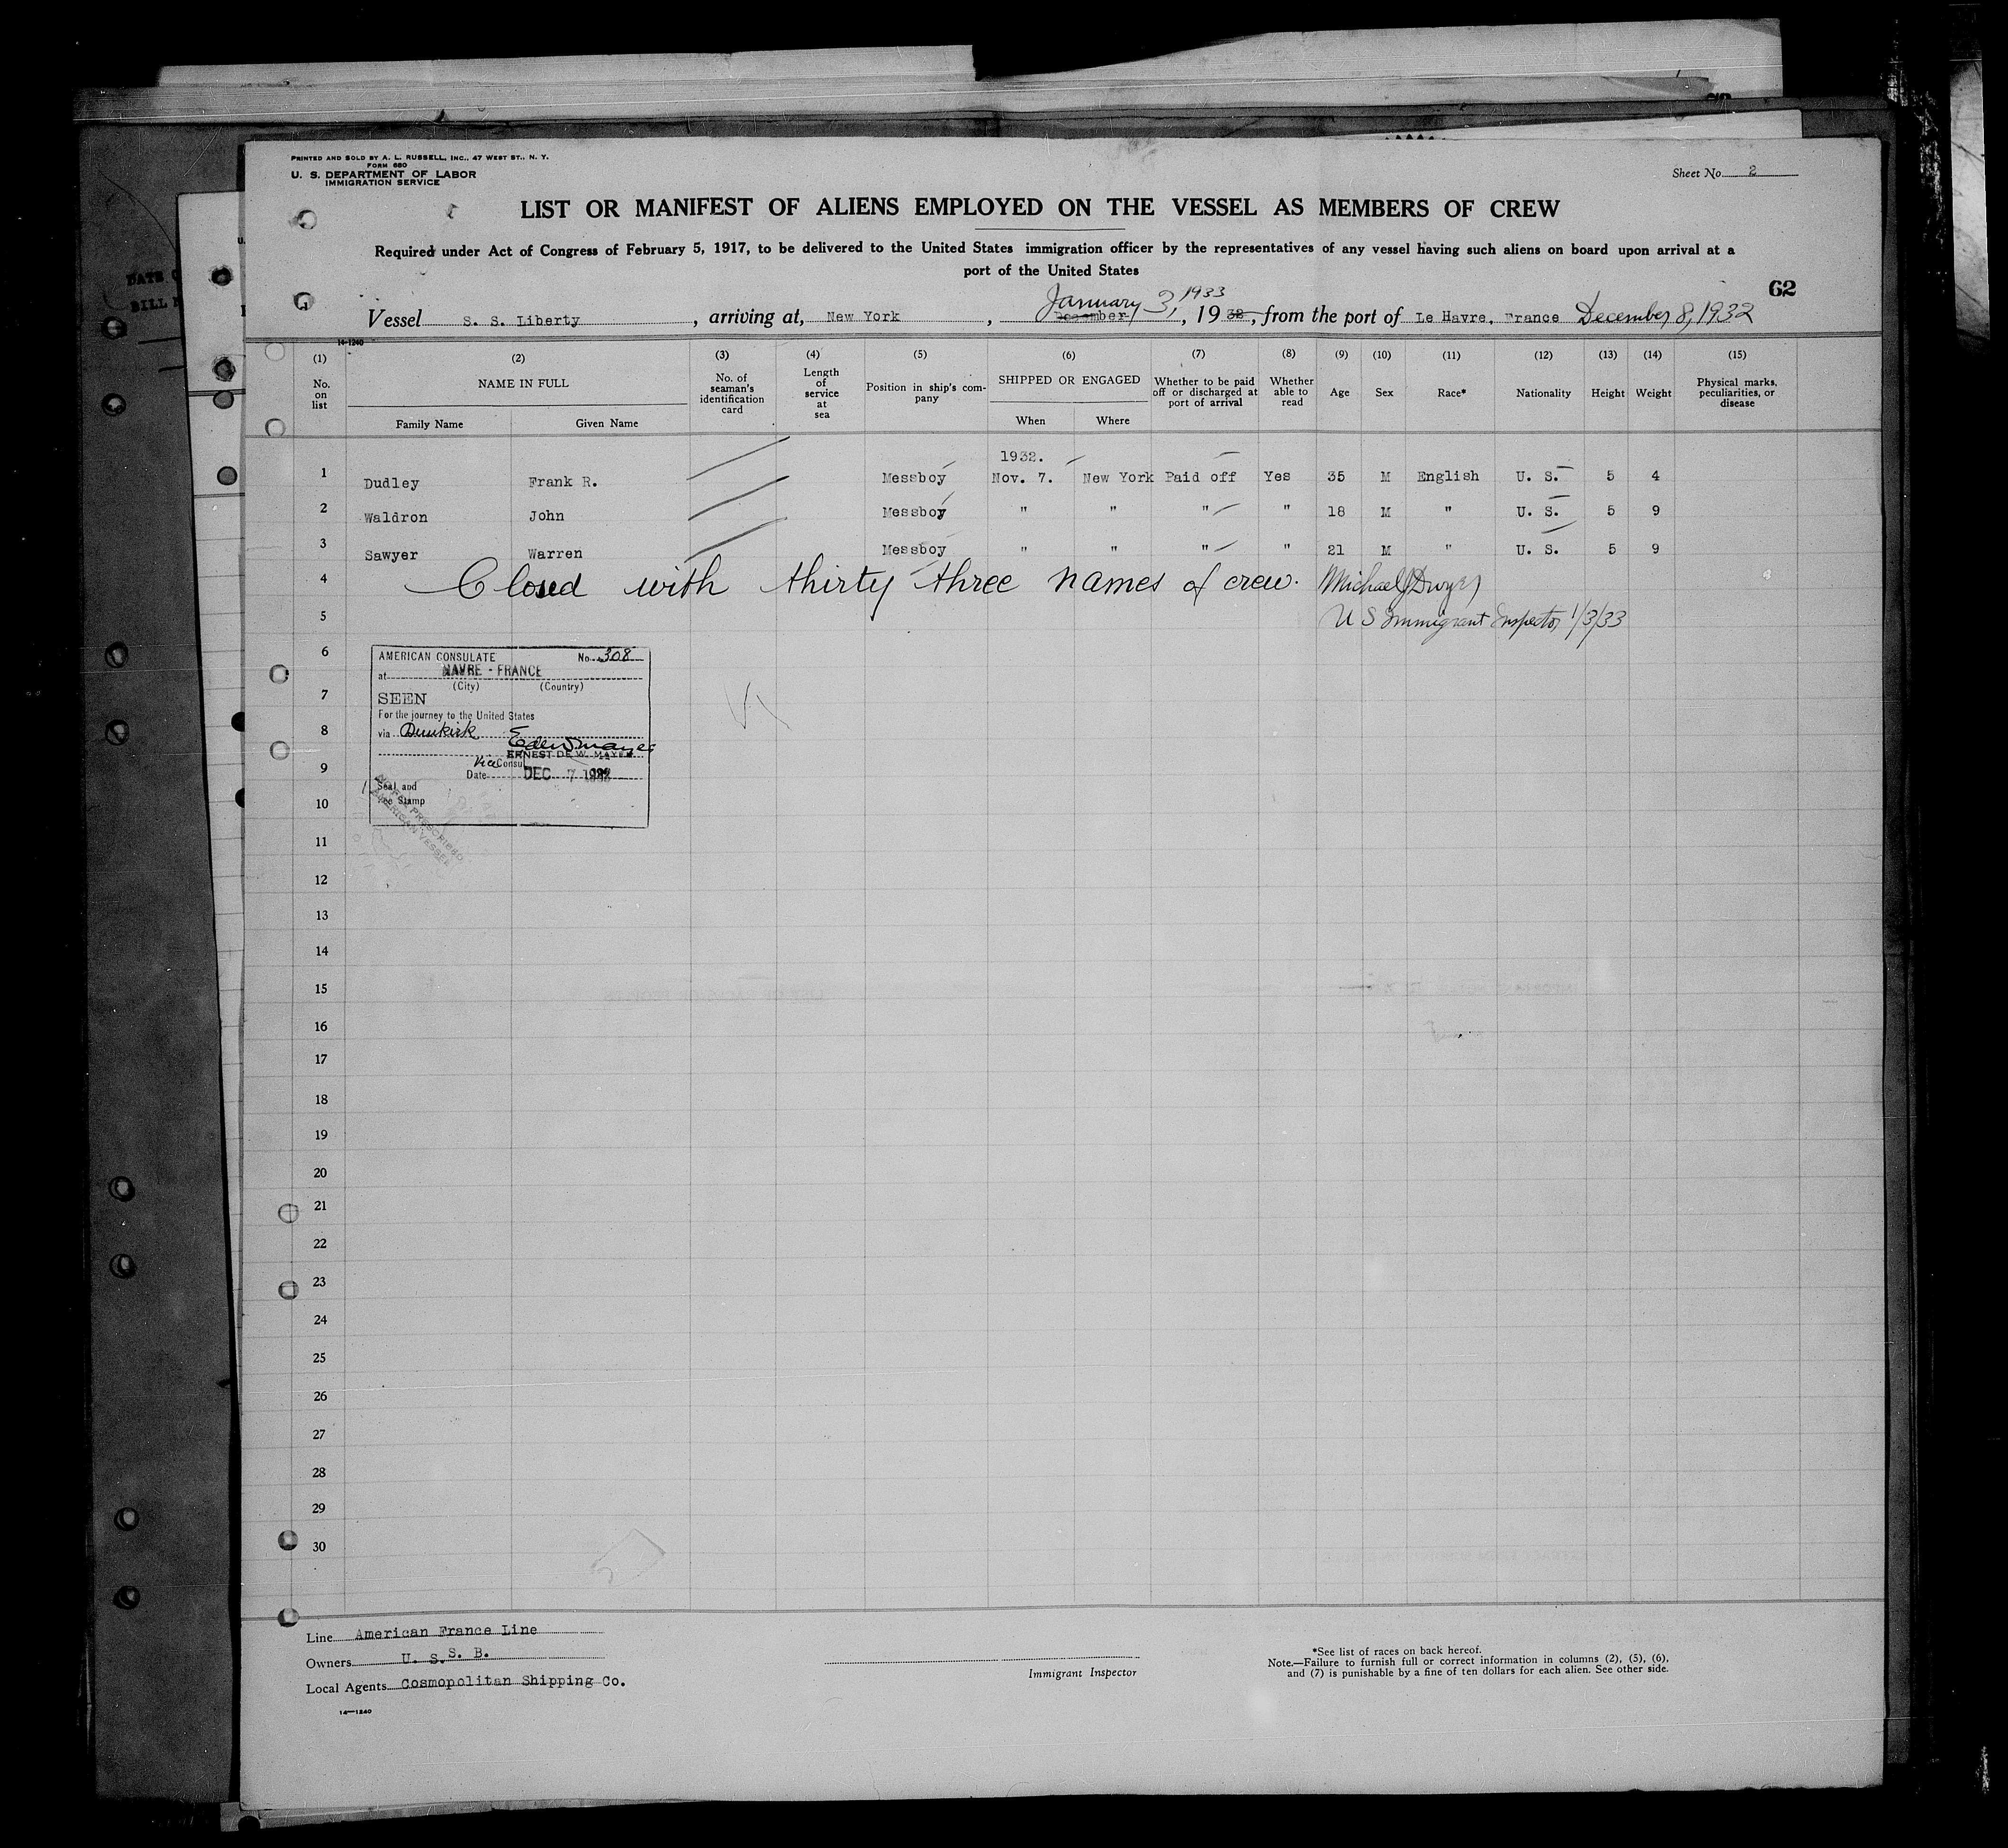 PRINTED AND SOLD BY A. L. RUSSELL, INC., 47 WEST ST., N. Y.
FORM 680
U. S. DEPARTMENT OF LABOR
IMMIGRATION SERVICE
Sheet No. 2
LIST OR MANIFEST OF ALIENS EMPLOYED ON THE VESSEL AS MEMBERS OF CREW
Required under Act of Congress of February 5, 1917, to be delivered to the United States immigration officer by the representatives of any vessel having such aliens on board upon arrival at a
port of the United States
62
January 3, 1933
Vessel S. S. Liberty, arriving at, New York, December, 19 32, from the port of Le Havre, France December 8, 1932
14-1240
(1) (2) (3) (4) (5) (6) (7) (8) (9) (10) (11) (12) (13) (14) (15)
No. on list
NAME IN FULL
Family Name Given Name
No. of seaman's identification card
Length of service at sea
Position in ship's company
SHIPPED OR ENGAGED
When Where
Whether to be paid off or discharged at port of arrival
Whether able to read
Age Sex Race* Nationality Height Weight
Physical marks, peculiarities, or disease
1932.
1 Dudley Frank R. Messboy Nov. 7. New York Paid off Yes 35 M English U. S. 5 4
2 Waldron John Messboy " " " " 18 M " U. S. 5 9
3 Sawyer Warren Messboy " " " " 21 M " U. S. 5 9
4 Closed with thirty three names of crew. Michael J Dwyer
5 U S Immigrant Inspector 1/3/33
6
7
8
9
10
11
12
13
14
15
16
17
18
19
20
21
22
23
24
25
26
27
28
29
30
AMERICAN CONSULATE No. 308
at HAVRE - FRANCE
(City) (Country)
SEEN
For the journey to the United States
via Dunkirk
ERNEST DE W. MAYER
Vice Consul
Date DEC 7 1932
Seal and
Fee Stamp
NO FEE PRESCRIBED
AMERICAN VESSEL
Line American France Line
Owners U. S. S. B.
Local Agents Cosmopolitan Shipping Co.
14—1240
Immigrant Inspector
*See list of races on back hereof.
Note.—Failure to furnish full or correct information in columns (2), (5), (6),
and (7) is punishable by a fine of ten dollars for each alien. See other side.